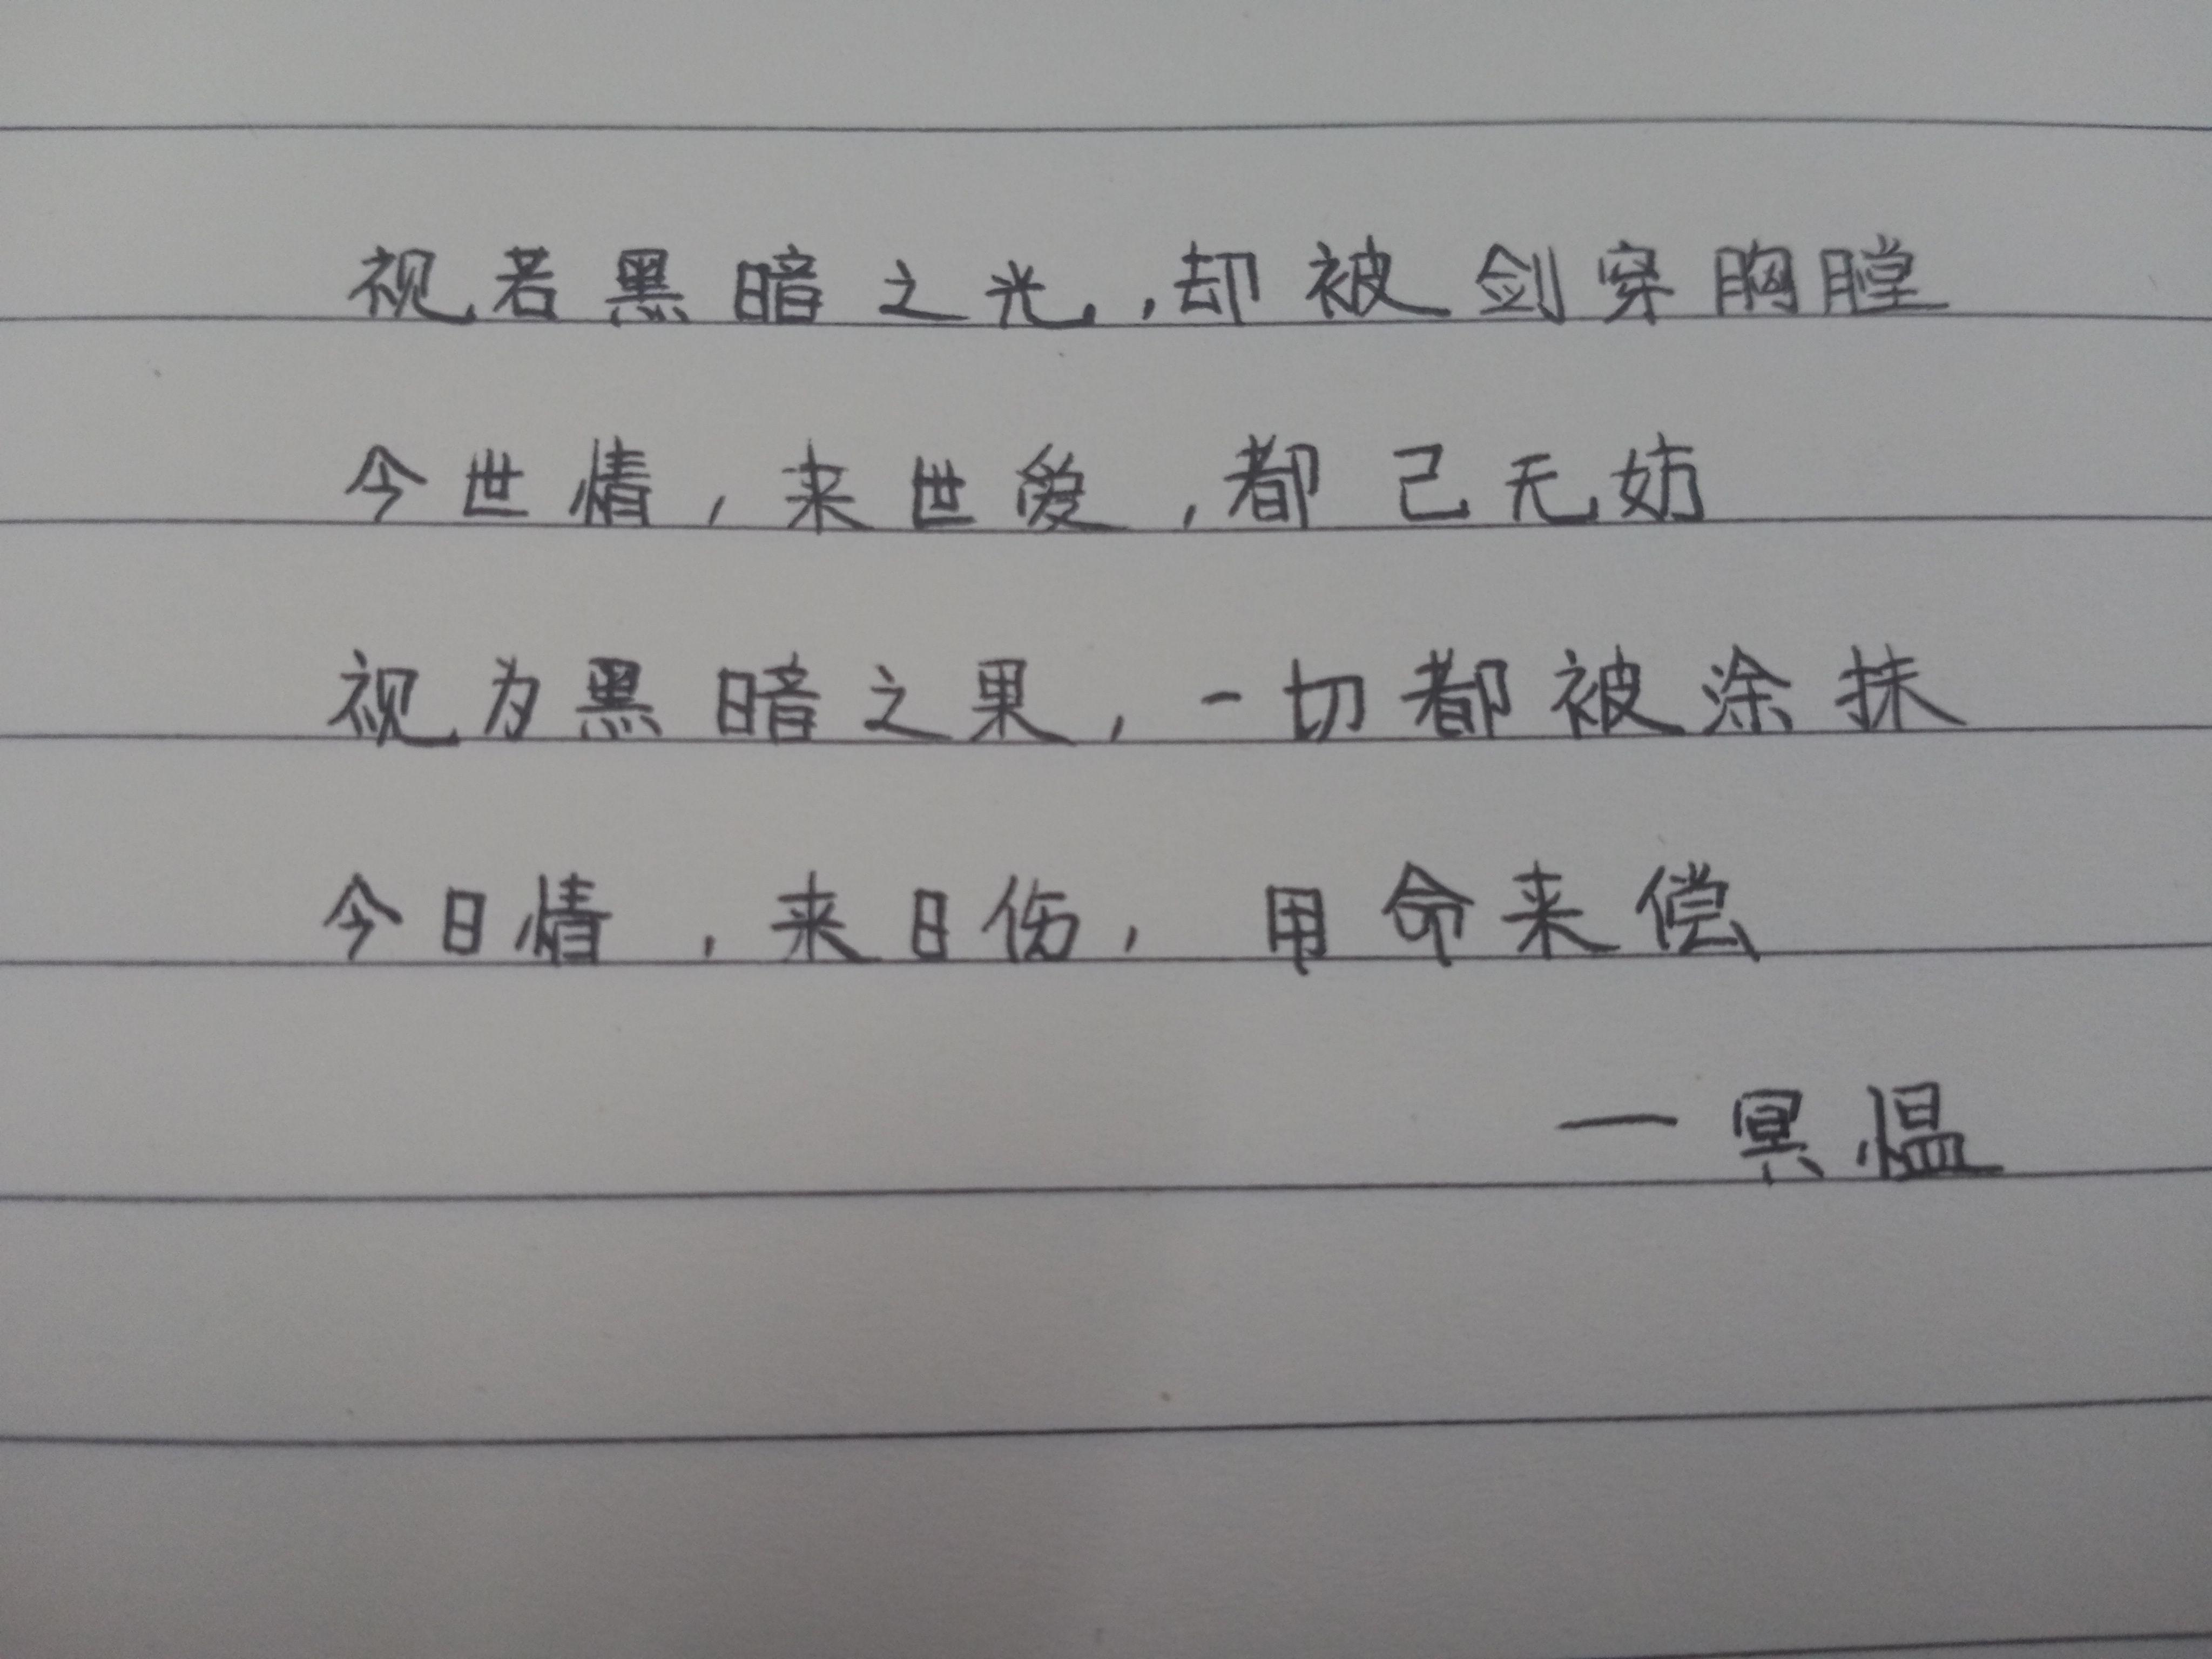 视若黑暗之光,却被剑穿胸膛
今世情,来世爱,都己无妨
视为黑暗之果,一切都被涂抹
今日情,来日伤,用命来偿
—冥愠